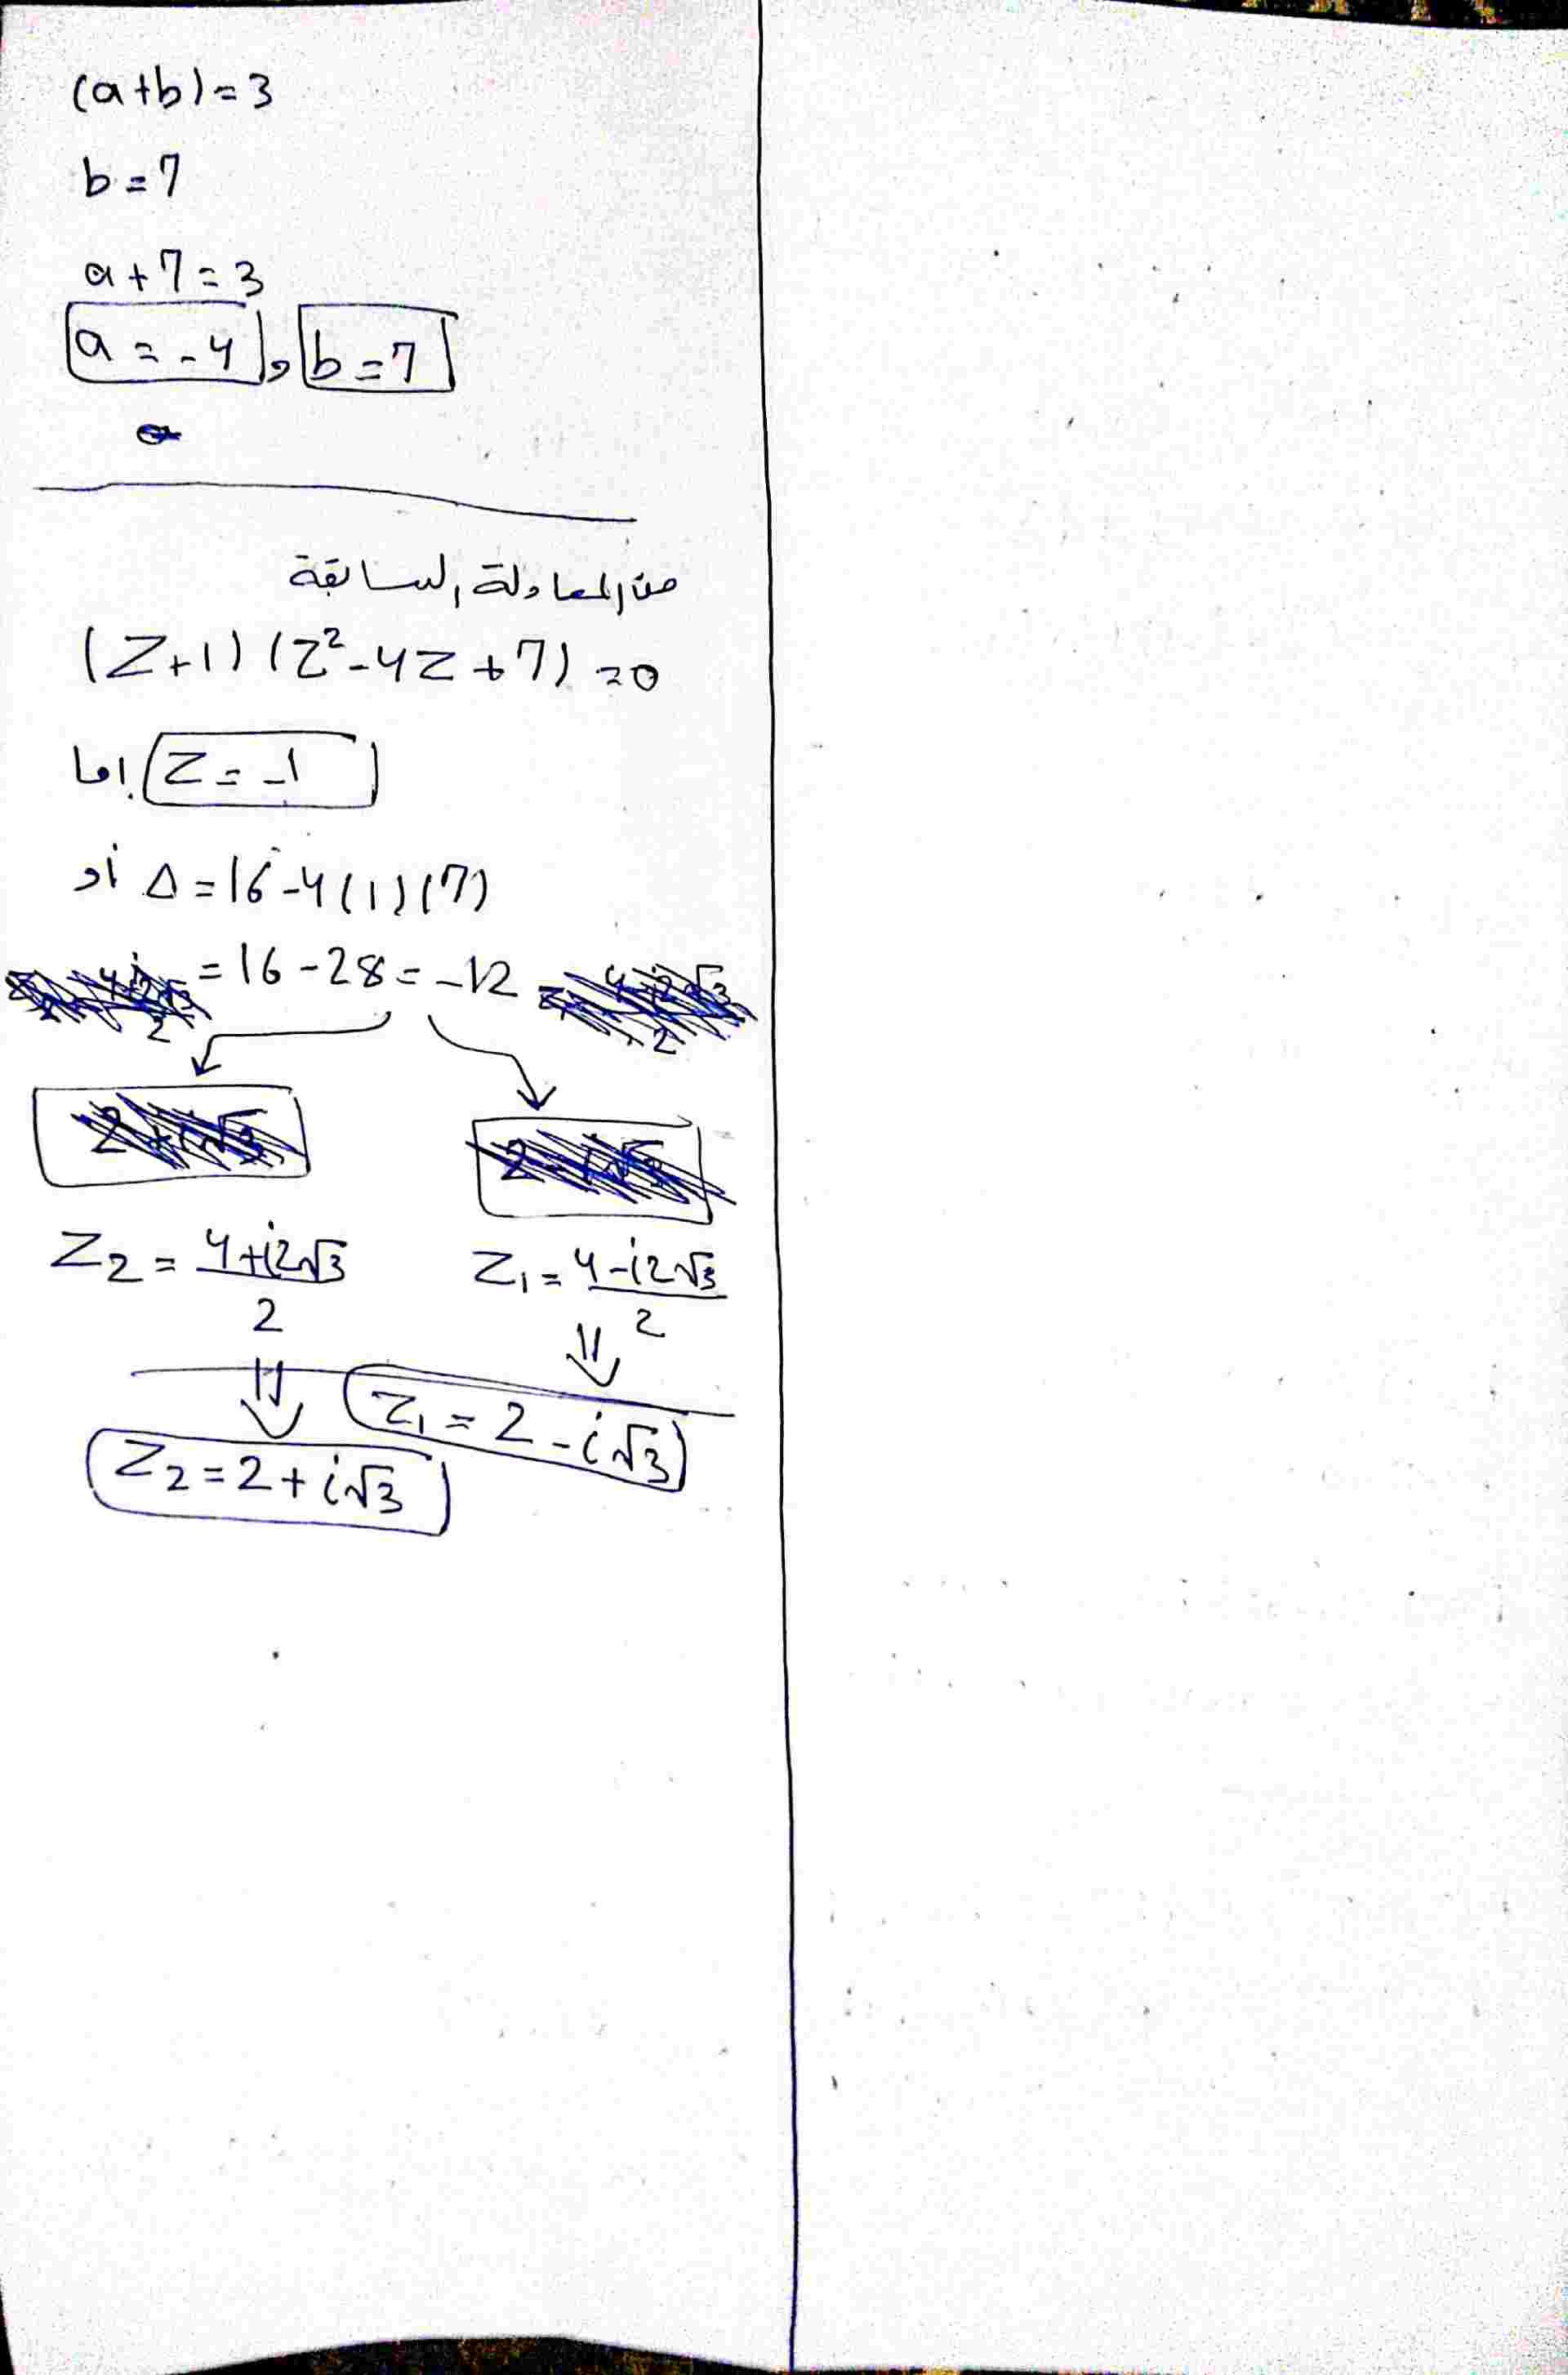 (a+b)=3
b=7
a+7=3
a=-4 و b=7
من المعادلة السابقة
(Z+1)(Z²-4Z+7)=0
إما Z=-1
أو Δ=16-4(1)(7)
=16-28=-12
Z₂=4+i2√3/2 Z₁=4-i2√3/2
⇓ ⇓
Z₁=2-i√3
Z₂=2+i√3